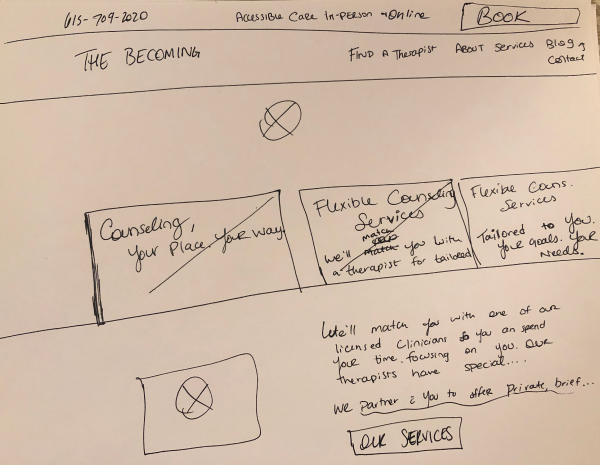 615-709-2020
Accessible Care In-Person + Online
BOOK
THE BECOMING
FIND A Therapist ABOUT Services Blog
Contact
Counseling,
Your Place, Your Way.
Flexible Counseling
Services
match
We'll match you with
a therapist for tailored
Flexible Couns.
Services
Tailored to You.
Your goals. Your
Needs.
We'll match you with one of our
licensed clinicians so you can spend
your time focusing on you. Our
therapists have special....
We partner you to offer private, brief...
OUR SERVICES